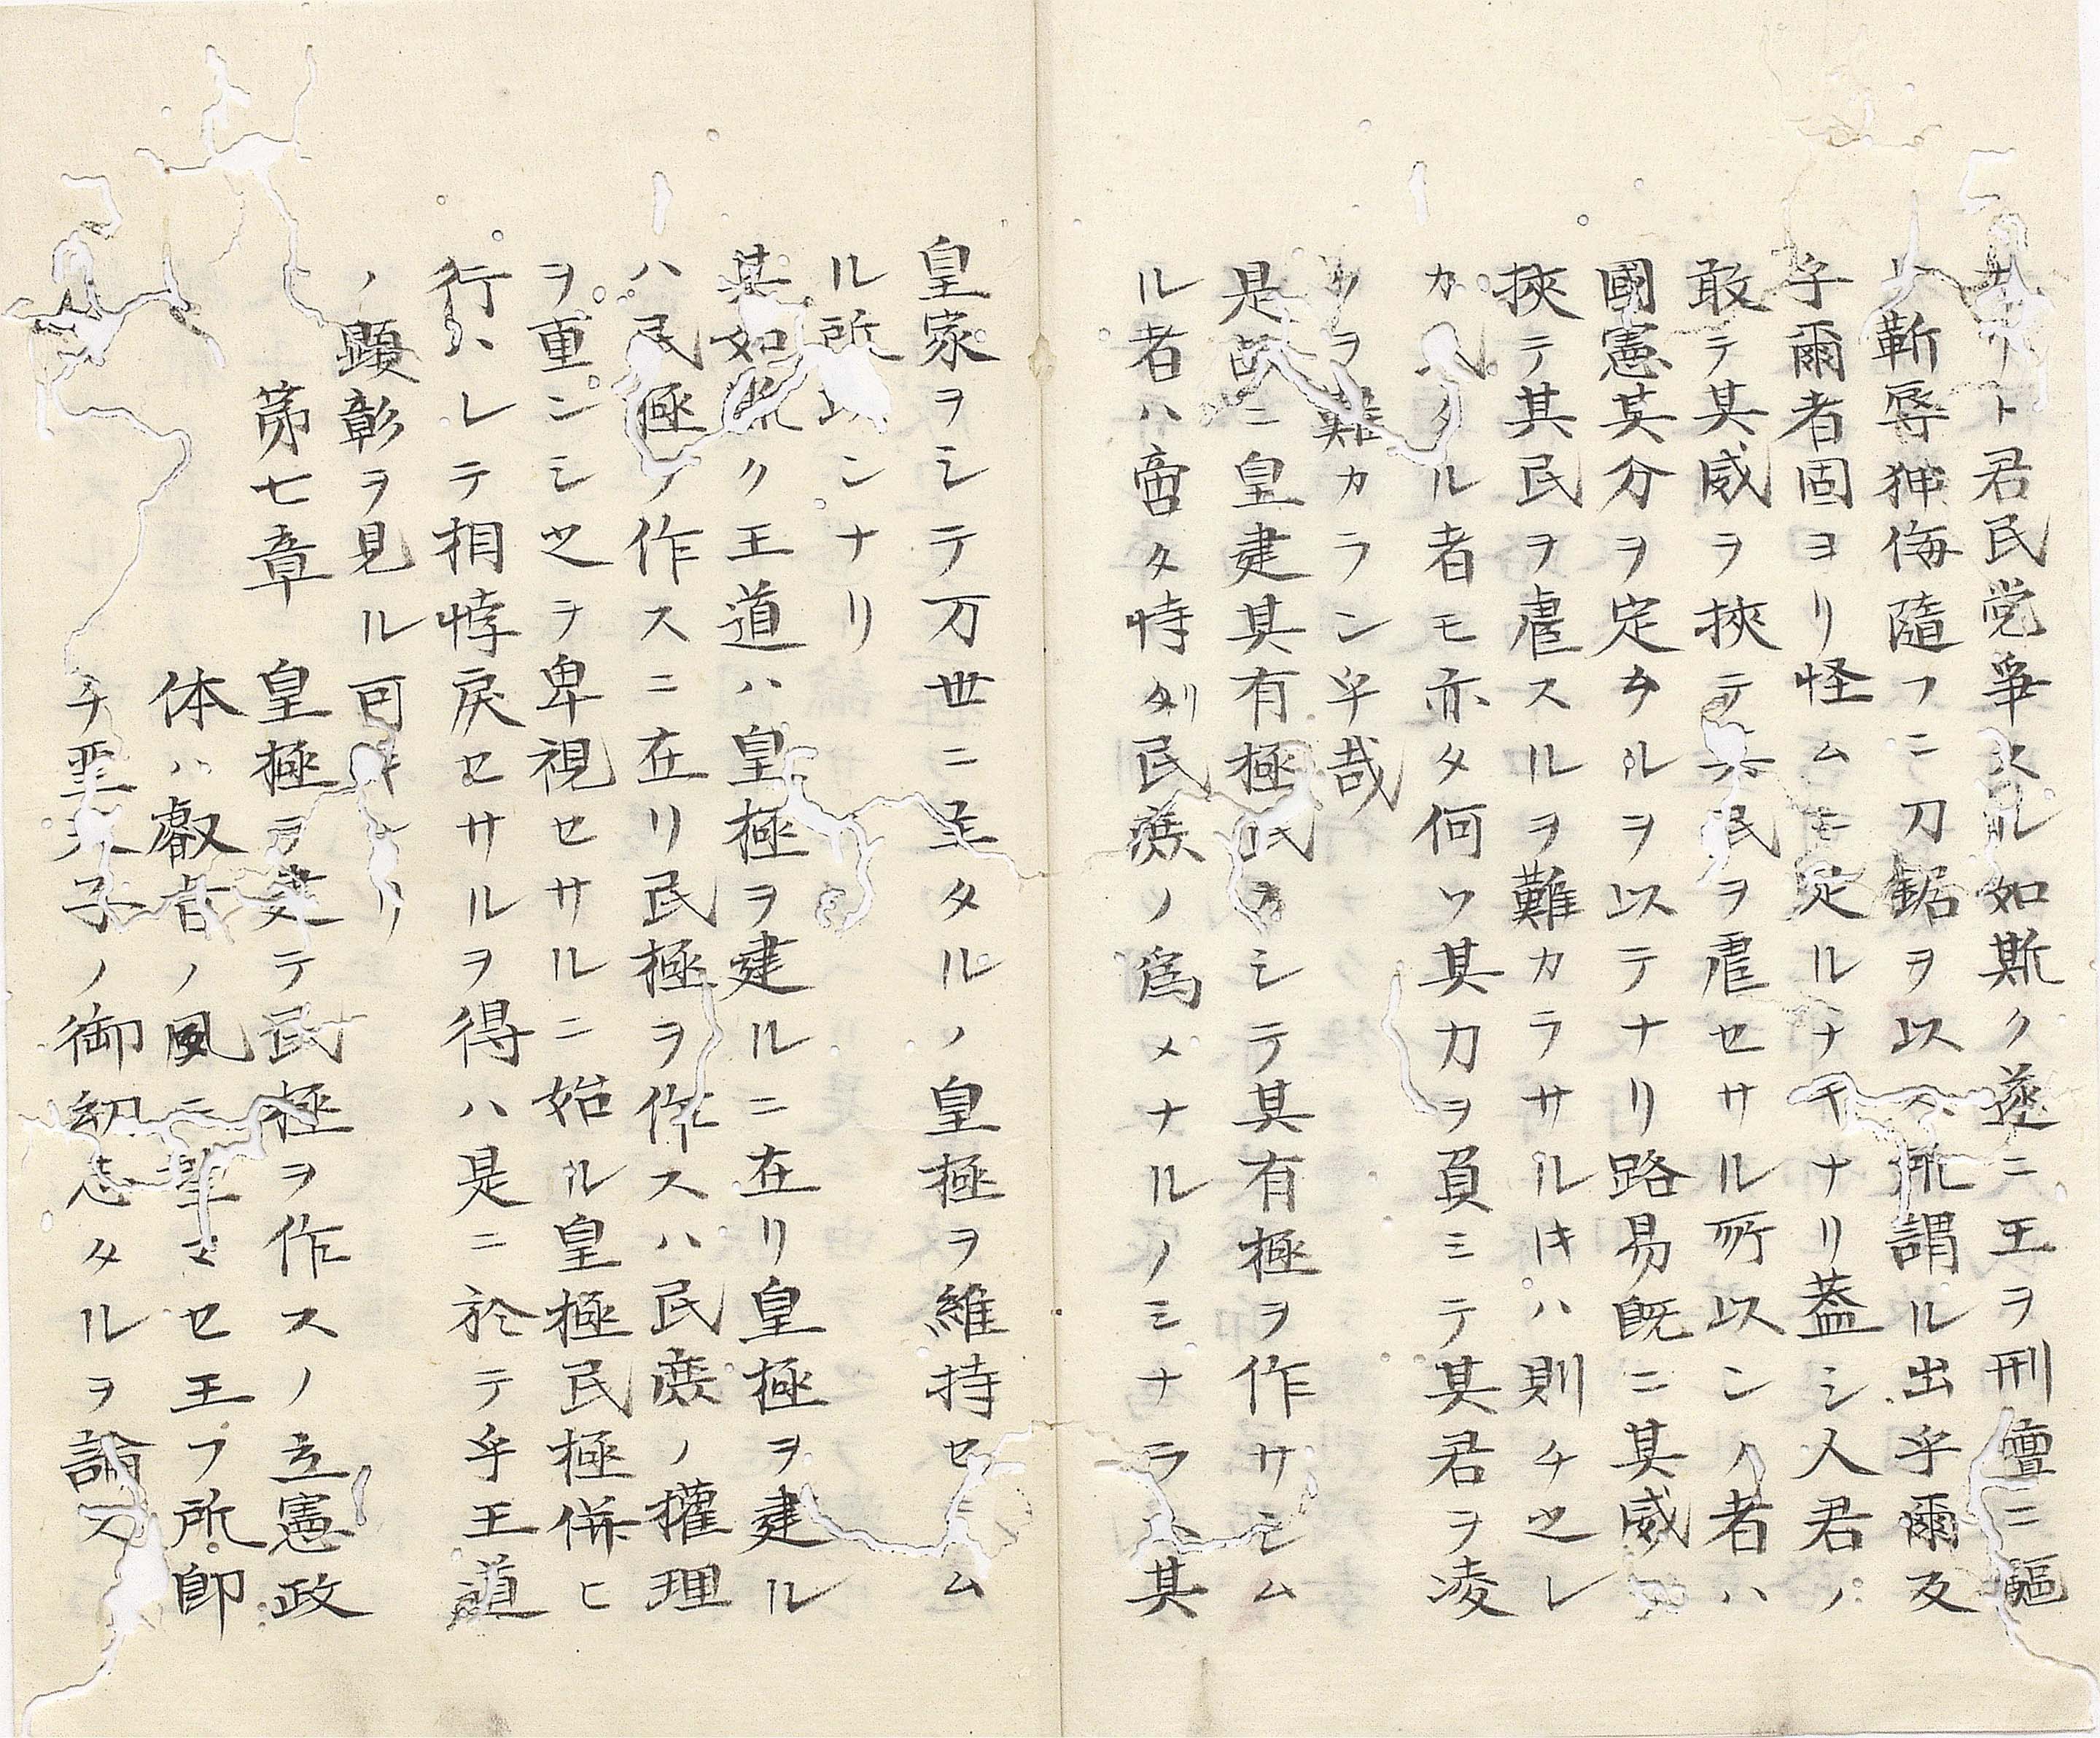 ト君民党爭スル如斯ク遂ニ王ヲ刑壇ニ驅
斬辱狎侮隨フニ刀鋸ヲ以ス所謂ル出乎爾反
乎爾者固ヨリ怪ムモ足ルナキナリ蓋シ人君ノ
敢テ其威ヲ挾テ其民ヲ虐セサル所以ンノ者ハ
國憲其分ヲ定ムルヲ以テナリ路易既ニ其威ヲ
挾テ其民ヲ虐スルヲ難カラサルトキハ則チ之レ
カ タル者モ亦タ何ソ其力ヲ負ミテ其君ヲ凌
クヲ難カラン乎哉
是故ニ皇建其有極民ヲシテ其有極ヲ作サシム
ル者ハ啻タ恃タリ民庶ノ為メナルノミナラス其
皇家ヲシテ万世ニ王タルノ皇極ヲ維持セシム
ル所以ンナリ
其如此ク王道ハ皇極ヲ建ルニ在リ皇極ヲ建ル
ハ民極ヲ作スニ在リ民極ヲ作スハ民庶ノ權理
ヲ重ンシ之ヲ卑視セサルニ始ル皇極民極併ヒ
行ハレテ相悖戾セサルヲ得ハ是ニ於テ乎王道
ノ顕彰ヲ見ル可キナリ
第七章 皇極ヲ建テ民極ヲ作スノ立憲政
体ハ叡旨ノ夙ニ望マセ王フ所卽
チ聖天子ノ御初志タルヲ論ス